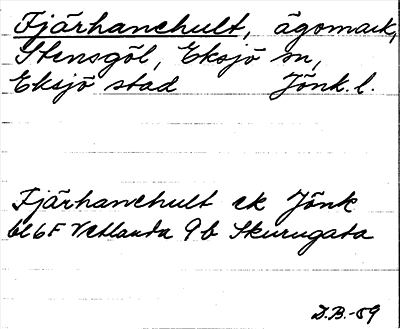 Fjärhanehult, ägomark,
Stensgöl, Eksjö sn,
Eksjö stad Jönk. l.
Fjärhanehult ek Jönk
bl 6F Vetlanda 9b Skurugata
D.B.-59